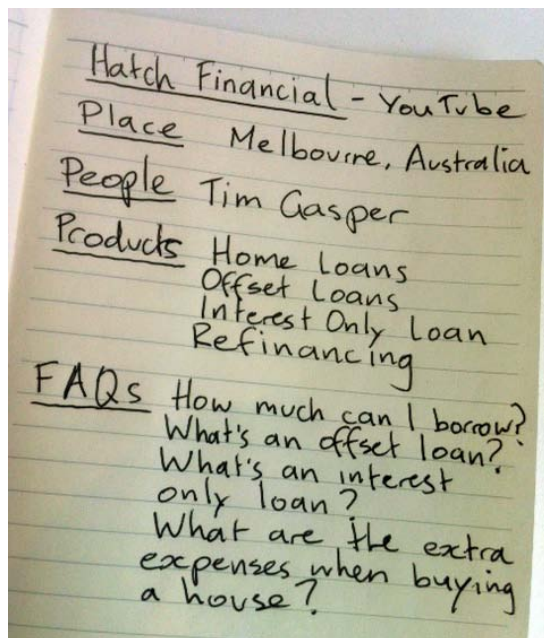 Hatch Financial - YouTube
Place Melbourne, Australia
People Tim Gasper
Products Home Loans
Offset Loans
Interest Only Loan
Refinancing
FAQs How much can I borrow?
What's an offset loan?
What's an interest
only loan?
What are the extra
expenses when buying
a house?